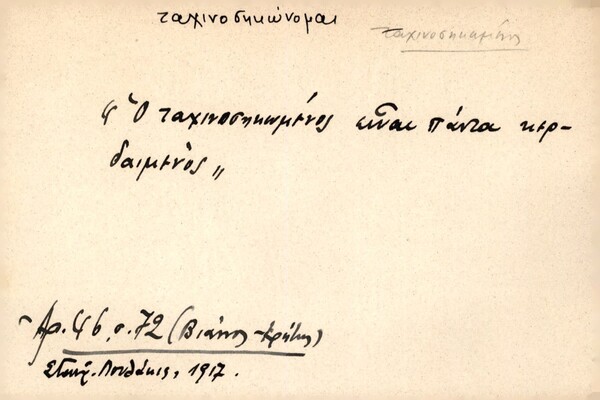 ταχινοσηκώνομαι
ταχινοσηκωμένος
"Ὁ ταχινοσηκωμένος εἶναι πάντα κερ-
δαιμένος"
Ἀρ. 46, σ. 72 (Βιάννος - Κρήτης)
Σταυρ. Λουλάκις, 1917.